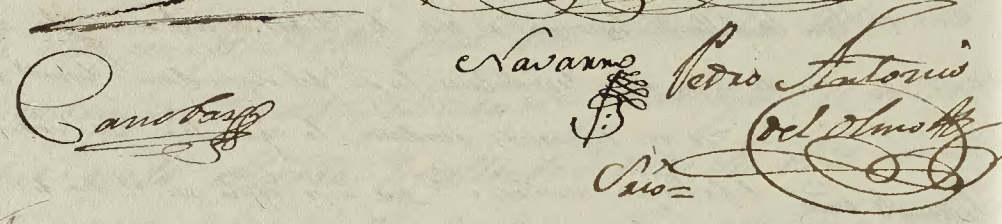 Canobas
Navarro
Pedro Antonio
del Olmo
Srio=